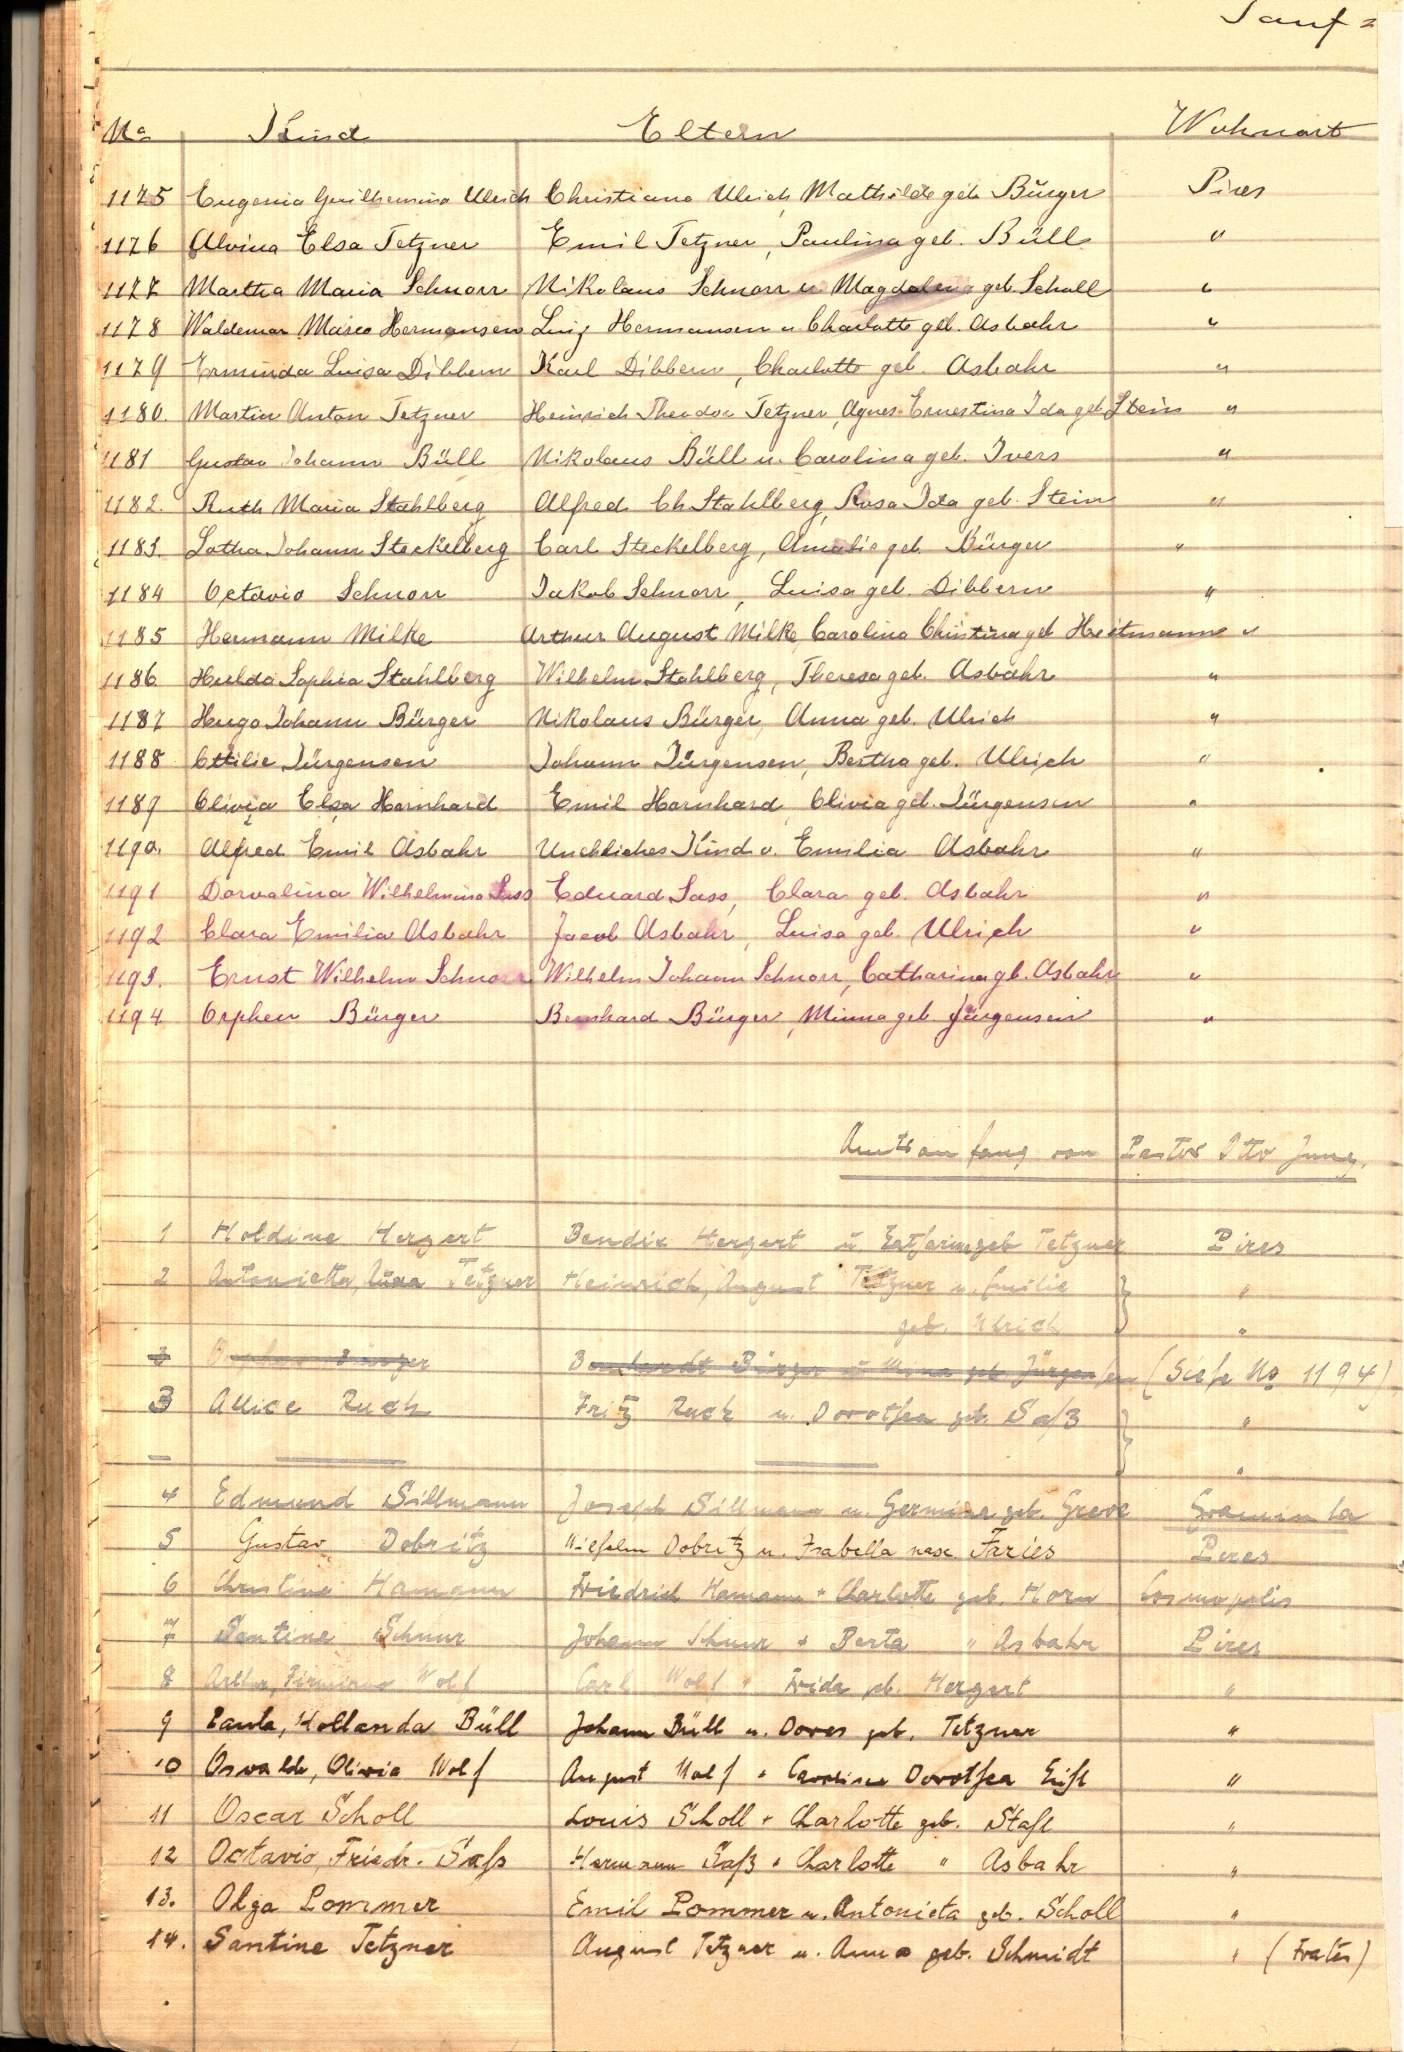 Tauf=
No Kind Eltern Wohnort
1175 Eugenia Guilhermina Ulrich Christiano Ulrich, Mathilde geb. Bürger Pires
1176 Alvina Elsa Tetzner Emil Tetzner, Paulina geb. Büll "
1177 Martha Maria Schnorr Nikolaus Schnorr u. Magdalena geb. Scholl "
1178 Waldemar Marco Hermansen Luiz Hermansen u. Charlotte geb. Asbahr "
1179 Erminda Luisa Dibbern Karl Dibbern, Charlotte geb. Asbahr "
1180. Martin Anton Tetzner Heinrich Theodor Tetzner, Agnes Ernestina Ida geb. Stein "
1181 Gustav Johann Büll Nikolaus Büll u. Carolina geb. Ivers "
1182. Ruth Maria Stahlberg Alfred Ch Stahlberg, Rosa Ida geb. Stein "
1183. Lotha Johann Steckelberg Carl Steckelberg, Amalie geb. Bürger "
1184 Octavio Schnorr Jakob Schnorr, Luisa geb. Dibbern "
1185 Hermann Milke Arthur August Milke, Carolina Christina geb Heitmann "
1186 Hulda Sophia Stahlberg Wilhelm Stahlberg, Theresa geb. Asbahr "
1187 Hugo Johann Bürger Nikolaus Bürger, Anna geb. Ulrich "
1188 Ottilie Jürgensen Johann Jürgensen, Bertha geb. Ulrich "
1189 Olivia Elsa Hornhard Emil Hornhard, Olivia geb. Jürgensen "
1190. Alfred Emil Asbahr Unehliches Kind v. Emilia Asbahr "
1191 Dorvalina Wilhelmina Sass Eduard Sass, Clara geb. Asbahr "
1192 Clara Emilia Asbahr Jacob Asbahr, Luisa geb. Ulrich "
1193. Ernst Wilhelm Schnorr Wilhelm Johann Schnorr, Catharina gb. Asbahr "
1194 Orpheu Bürger Bernhard Bürger, Minna geb Jürgensen "
Amtsanfang von Pastor Otto Jung.
1 Holdine Hergert Bendix Hergert u Catharina geb Tetzner Pires
2 Antonietta, Tetzner Heinrich, August Tetzner u. Emilie "
geb. Ulrich "
3 Orpheu Bürger Bernhardt Bürger u Mina geb Jürgensen (Siehe No 1194)
3 Allice Ruck Fritz Ruck u. Dorothea geb. Saß "
— — — "
4 Edmund Sillmann Joseph Sillmann u. Germine geb. Greve
5 Gustav Dobritz Wilhelm Dobritz u. Isabella nasc. Faries Pires
6 Christine Hamann Friedrich Hamann + Charlotte geb. Horn Cosmopolis
7 Santine Schnur Johann Schnur + Berta " Asbahr Pires
8 Arthur, Firmino Wolf Carl Wolf + Frida geb. Hergert "
9 Paula, Hollanda Büll Johann Büll u. Dores geb. Tetzner "
10 Osvaldo, Olivio Wolf August Wolf + Caroline Dorothea "
11 Oscar Scholl Louis Scholl + Charlotte geb. Stahl "
12 Octavio, Friedr. Saß Hermann Saß + Charlotte " Asbahr "
13. Olga Pommer Emil Pommer u. Antonieta geb. Scholl "
14. Santine Tetzner August Tetzner u. Anna geb. Schmidt " (Frates)